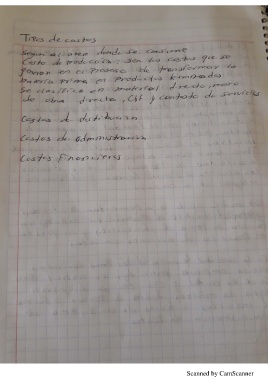 Tipos de costos
Segun el area donde se consume
Costo de producción: Son los costos que se
ponen en el proceso de transformar la
materia prima en productos terminados
Se clasifica en material directo, mano
de obra directa, CIF y contrato de servicios
Costos de distribucion
Costos de administracion
Costos Financieros
Scanned by CamScanner